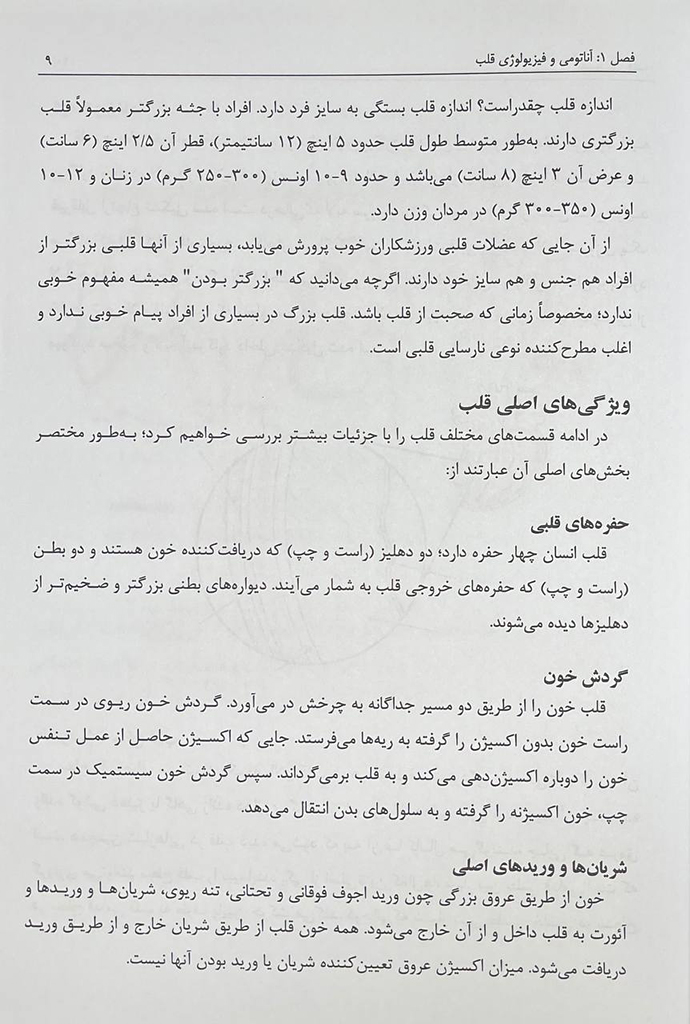 فصل ۱: آناتومی و فیزیولوژی قلب ۹
اندازه قلب چقدراست؟ اندازه قلب بستگی به سایز فرد دارد. افراد با جثه بزرگتر معمولاً قلب
بزرگتری دارند. به‌طور متوسط طول قلب حدود ۵ اینچ (۱۲ سانتیمتر)، قطر آن ۲/۵ اینچ (۶ سانت)
و عرض آن ۳ اینچ (۸ سانت) می‌باشد و حدود ۹-۱۰ اونس (۳۰۰-۲۵۰ گرم) در زنان و ۱۲-۱۰
اونس (۳۵۰-۳۰۰ گرم) در مردان وزن دارد.
از آن جایی که عضلات قلبی ورزشکاران خوب پرورش می‌یابد، بسیاری از آنها قلبی بزرگتر از
افراد هم جنس و هم سایز خود دارند. اگرچه می‌دانید که " بزرگتر بودن" همیشه مفهوم خوبی
ندارد؛ مخصوصاً زمانی که صحبت از قلب باشد. قلب بزرگ در بسیاری از افراد پیام خوبی ندارد و
اغلب مطرح‌کننده نوعی نارسایی قلبی است.
ویژگی‌های اصلی قلب
در ادامه قسمت‌های مختلف قلب را با جزئیات بیشتر بررسی خواهیم کرد؛ به‌طور مختصر
بخش‌های اصلی آن عبارتند از:
حفره‌های قلبی
قلب انسان چهار حفره دارد؛ دو دهلیز (راست و چپ) که دریافت‌کننده خون هستند و دو بطن
(راست و چپ) که حفره‌های خروجی قلب به شمار می‌آیند. دیواره‌های بطنی بزرگتر و ضخیم‌تر از
دهلیزها دیده می‌شوند.
گردش خون
قلب خون را از طریق دو مسیر جداگانه به چرخش در می‌آورد. گردش خون ریوی در سمت
راست خون بدون اکسیژن را گرفته به ریه‌ها می‌فرستد. جایی که اکسیژن حاصل از عمل تنفس
خون را دوباره اکسیژن‌دهی می‌کند و به قلب برمی‌گرداند. سپس گردش خون سیستمیک در سمت
چپ، خون اکسیژنه را گرفته و به سلول‌های بدن انتقال می‌دهد.
شریان‌ها و وریدهای اصلی
خون از طریق عروق بزرگی چون ورید اجوف فوقانی و تحتانی، تنه ریوی، شریان‌ها و وریدها و
آئورت به قلب داخل و از آن خارج می‌شود. همه خون قلب از طریق شریان خارج و از طریق ورید
دریافت می‌شود. میزان اکسیژن عروق تعیین‌کننده شریان یا ورید بودن آنها نیست.